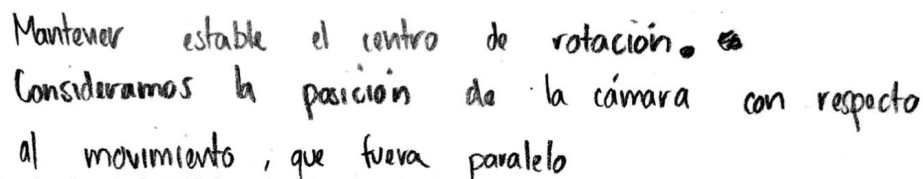 Mantener estable el centro de rotación.
Consideramos la posición de la cámara con respecto
al movimiento, que fuera paralelo